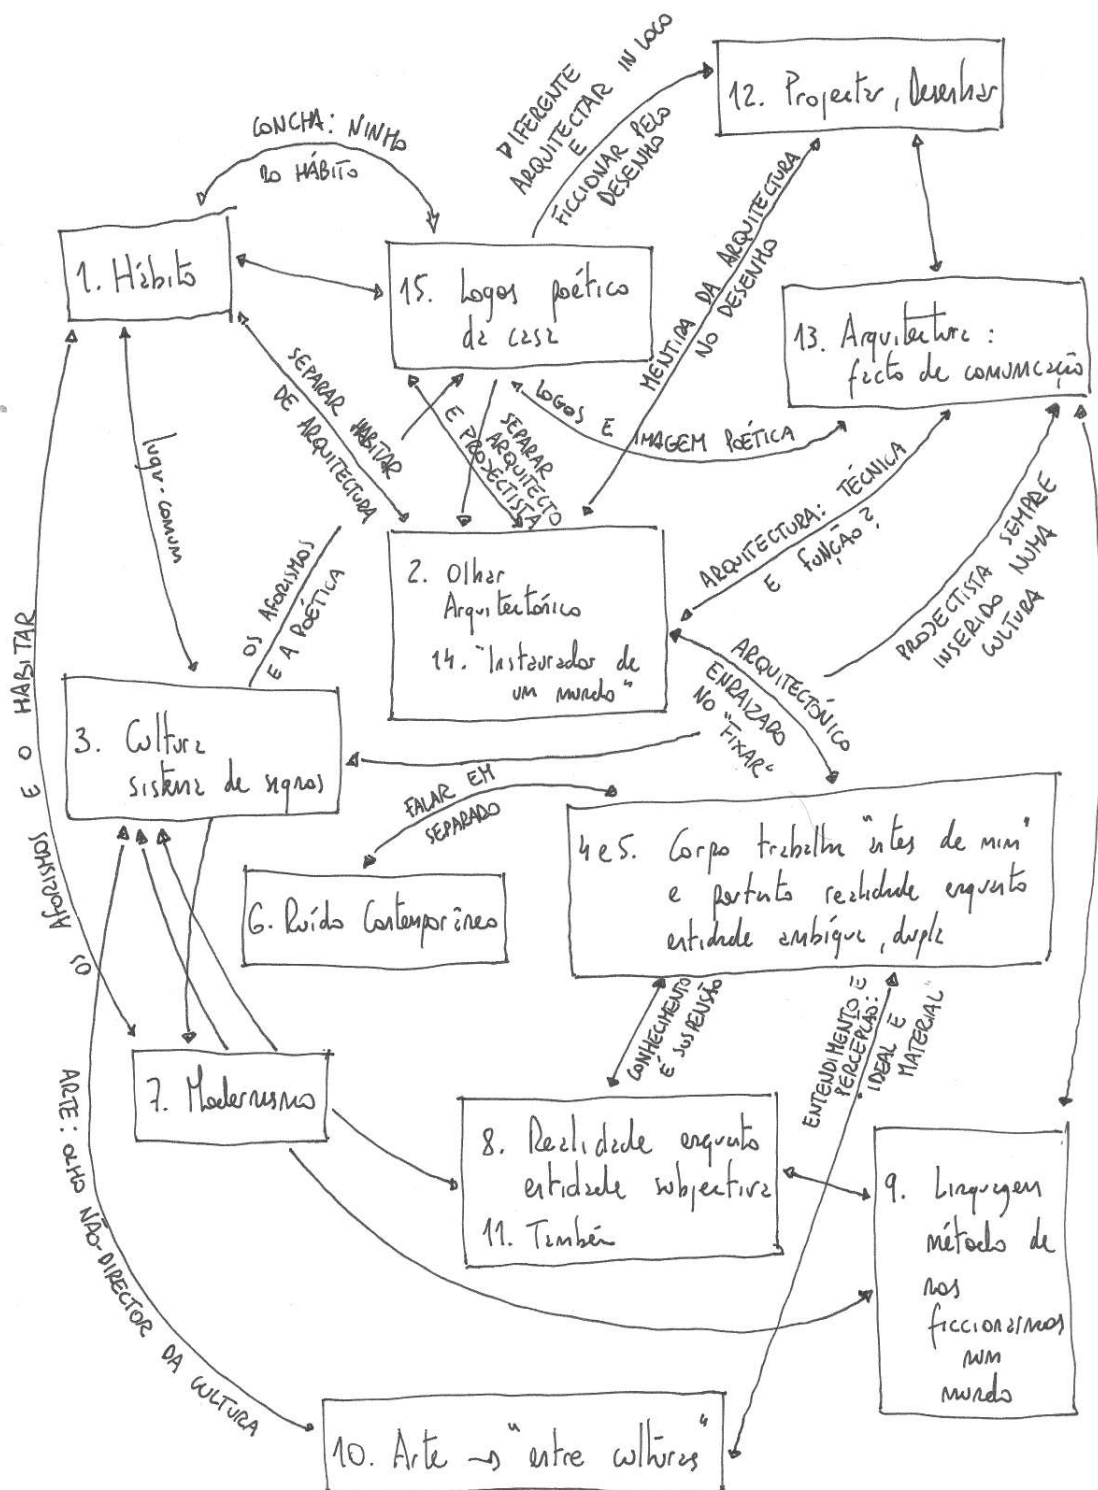 DIFERENTE
ARQUITECTAR IN LOCO
E
FICCIONAR PELO
DESENHO
12. Projectar, Desenhar
CONCHA: NINHO
DO HÁBITO
1. Hábito
15. Logos poético
da casa
MENTIRA DA ARQUITECTURA
NO DESENHO
13. Arquitectura:
facto de comunicação
SEPARAR HABITAR
DE ARQUITECTURA
SEPARAR
ARQUITECTO
E PROJECTISTA
LOGOS E IMAGEM POÉTICA
lugar-comum
OS AFORISMOS
E A POÉTICA
2. Olhar
Arquitectónico
14. "Instaurador de
um mundo"
ARQUITECTURA: TÉCNICA
E FUNÇÃO?
PROJECTISTA SEMPRE
INSERIDO NUMA
CULTURA
ARQUITECTÓNICO
ENRAIZADO
NO "FIXAR"
OS AFORISMOS E O HABITAR
3. Cultura
sistema de signos
FALAR EM
SEPARADO
4 e 5. Corpo trabalha "antes de mim"
e portanto realidade enquanto
entidade ambígua, dupla
6. Ruído Contemporâneo
CONHECIMENTO
É SUSPENSÃO
ENTENDIMENTO E
PERCEPÇÃO:
"IDEAL E
MATERIAL"
7. Modernismo
8. Realidade enquanto
entidade subjectiva
11. Também
9. Linguagem
método de
nos
ficcionarmos
num
mundo
ARTE: OLHO NÃO-DIRECTOR DA CULTURA
10. Arte → "entre culturas"